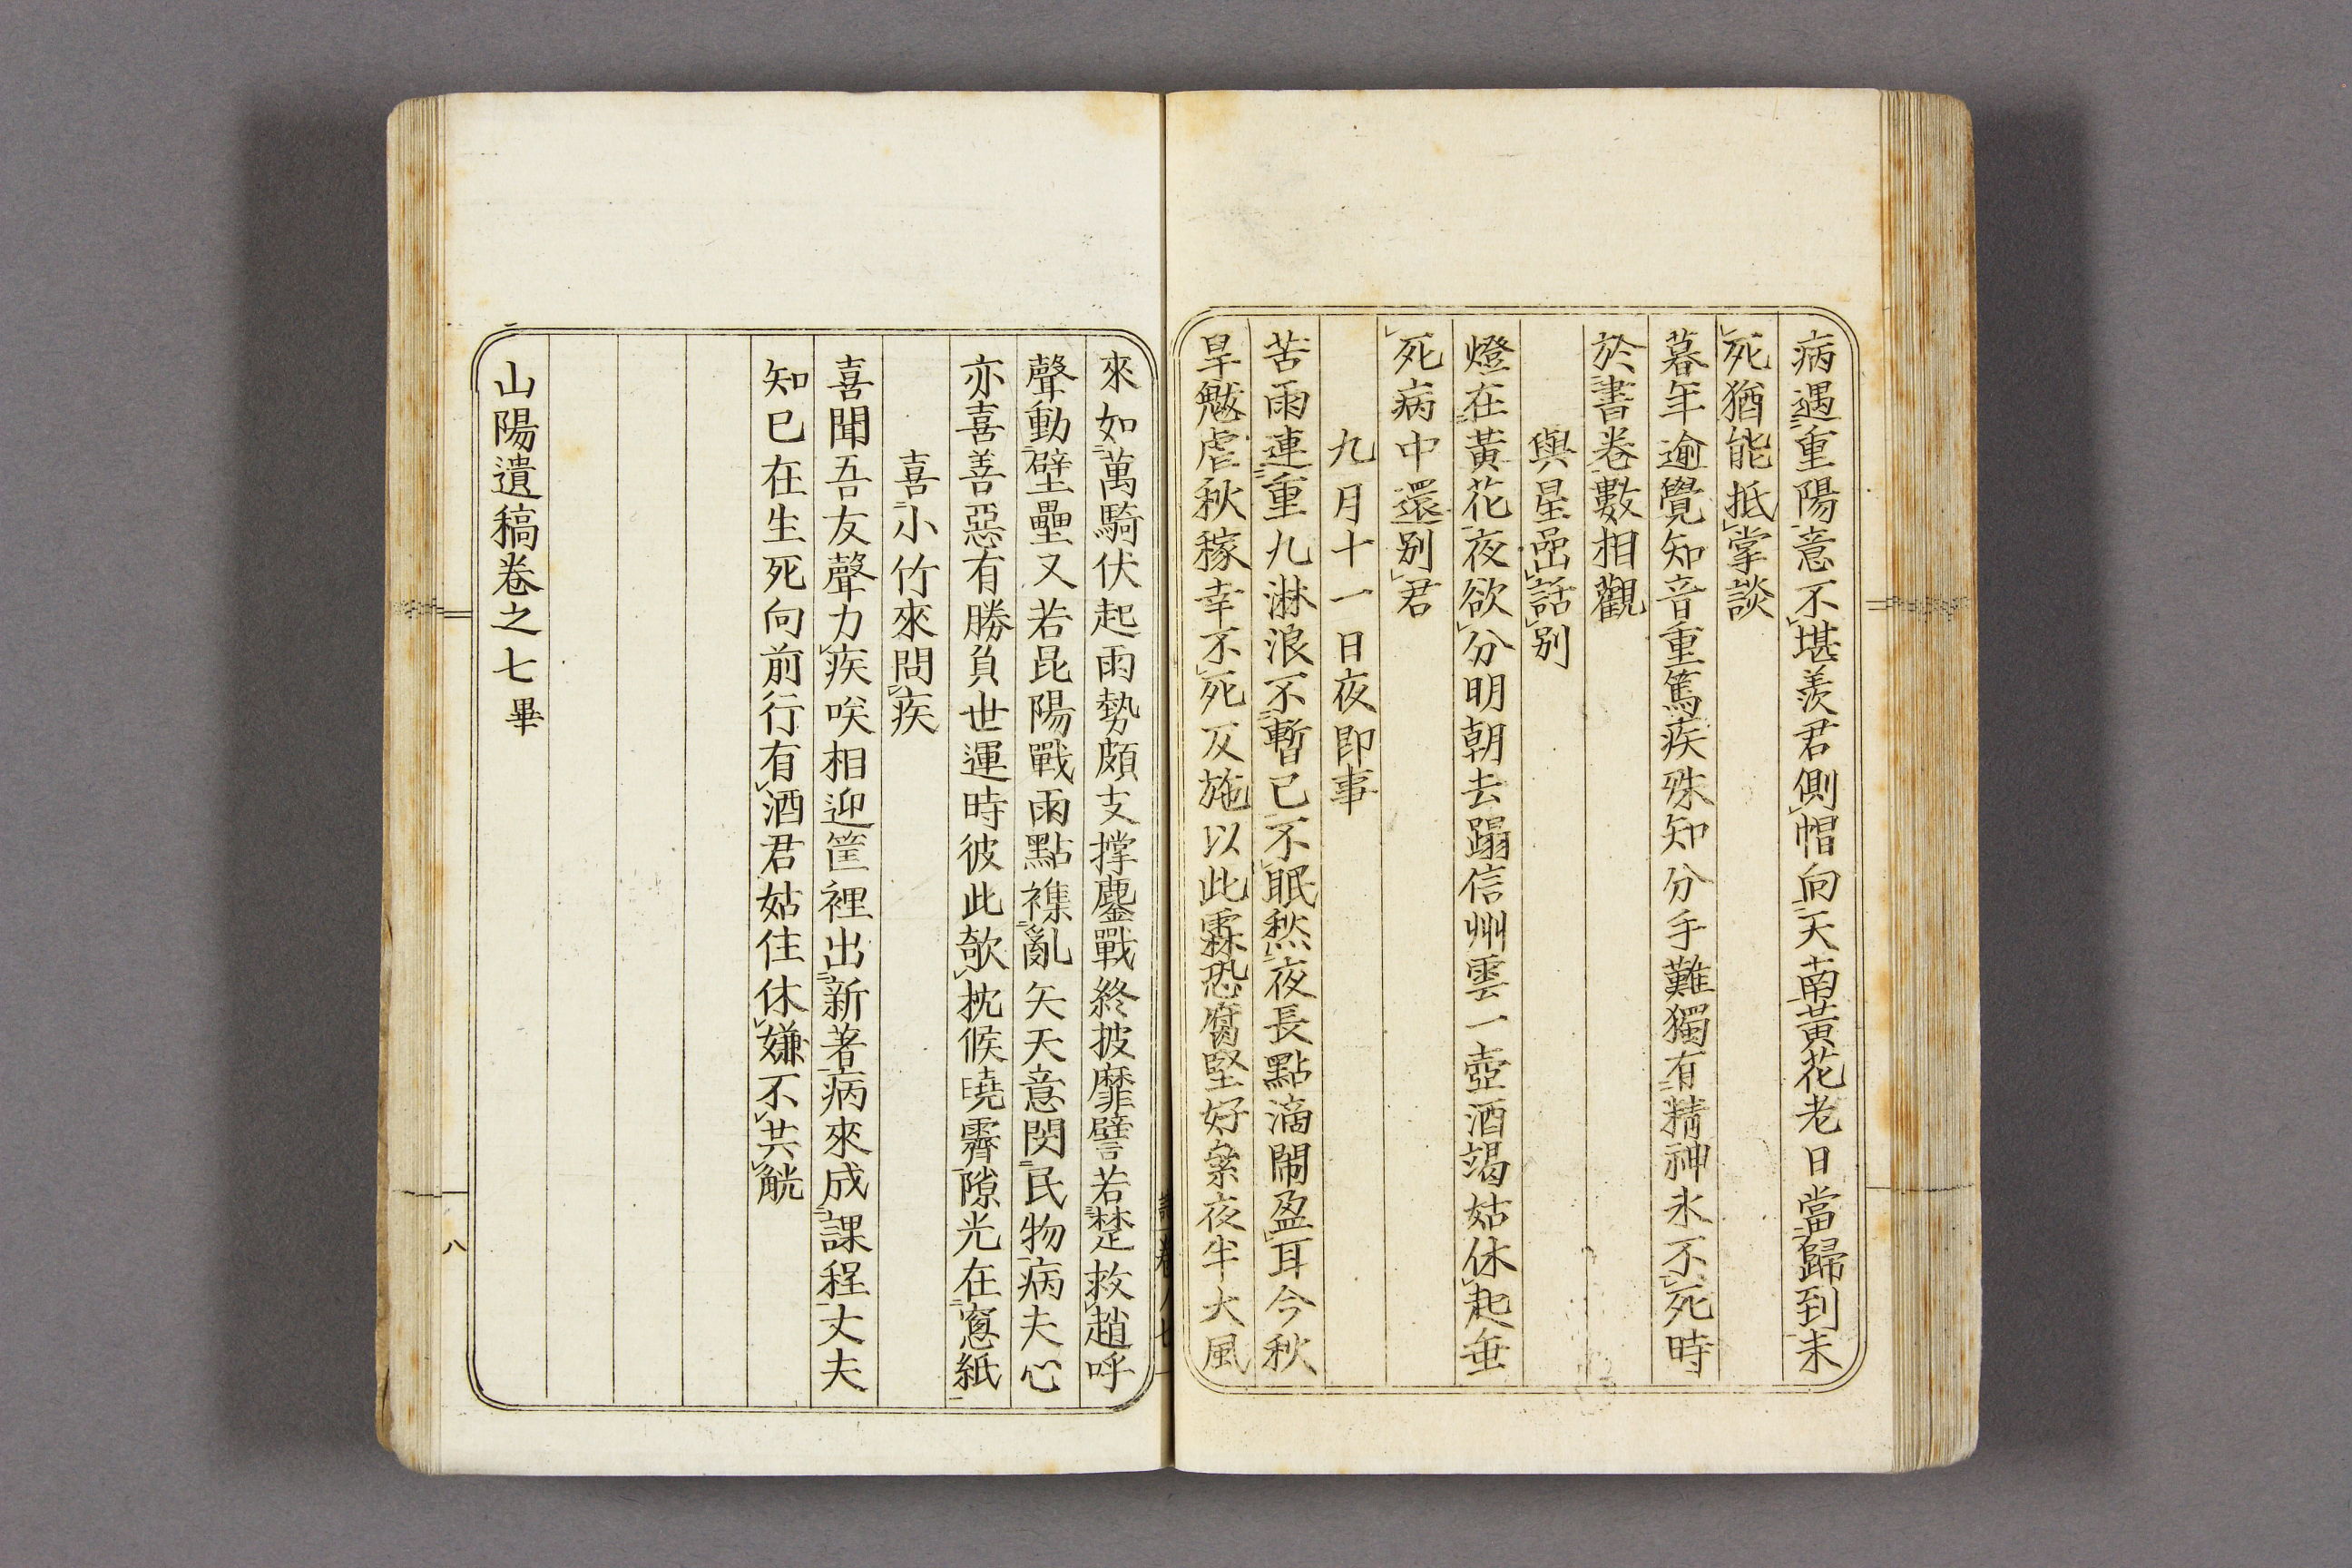 病遇重陽意不堪羨君側帽向天南黃花老日當歸到未
死猶能抵掌談
暮年逾覺知音重篤疾殊知分手難獨有精神永不死時
於書卷數相觀
與星嵒話別
燈在黃花夜欲分明朝去蹋信州雲一壺酒竭姑休起垂
死病中還別君
九月十一日夜即事
苦雨連重九淋浪不暫已不眠愁夜長點滴鬧盈耳今秋
旱魃虐秋稼幸不死又施以此霖恐腐堅好穼夜半大風
來如萬騎伏起雨勢頗支撑鏖戰終披靡譬若楚救趙呼
聲動壁壘又若昆陽戰雨點襍亂矢天意閔民物病夫心
亦喜善惡有勝負世運時彼此欹枕候曉霽隙光在窻紙
喜小竹來問疾
喜聞吾友聲力疾唉相迎筐裡出新著病來成課程丈夫
知已在生死向前行有酒君姑住休嫌不共觥
山陽遺稿卷之七畢
八